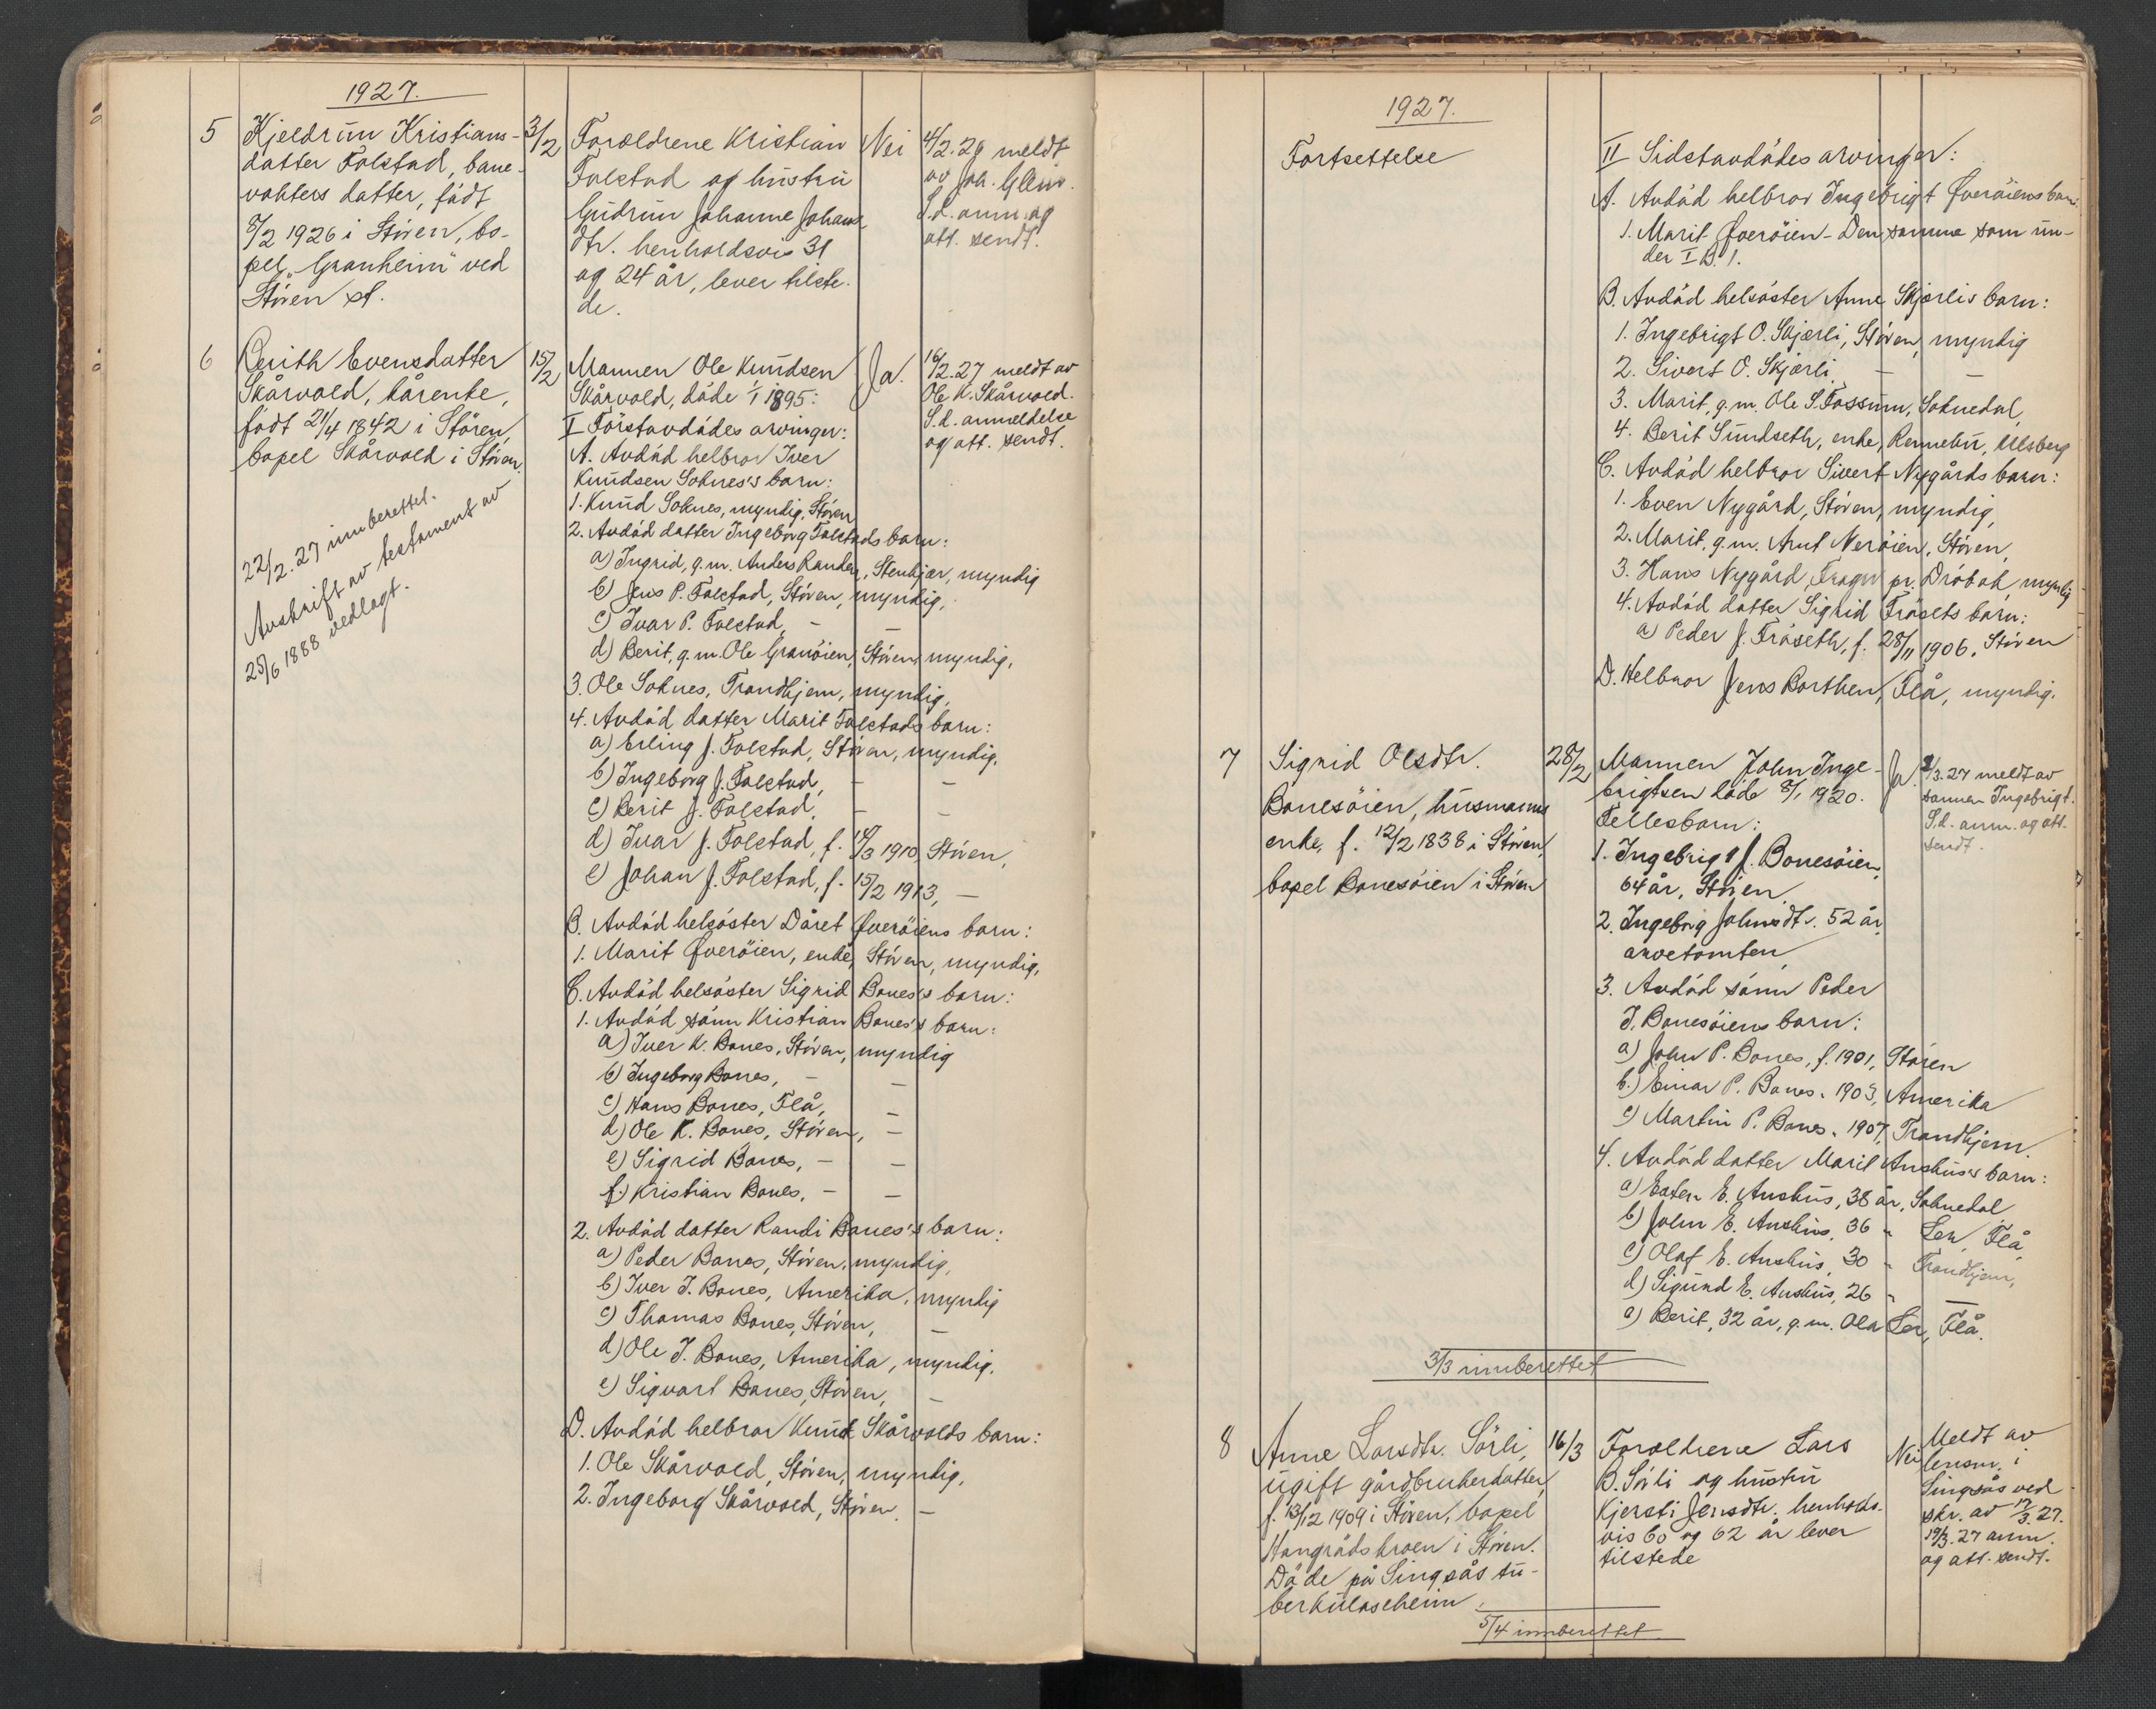 1927.
5
Kjeldrun Kristians-
datter Folstad, bane-
vokters datter, født
8/2 1926 i Støren, bo-
pel "Granheim" ved
Støren st.
3/2
Foreldrene Kristian
Folstad og hustru
Gudrun Johanne Johans
dtr. henholdsvis 31
og 24 år, lever tilste-
de.
Nei
4/2.27 meldt
av Joh.
S.d. anm. og
att. sendt.
6
Berith Evensdatter
Skårvold, kårenke,
født 21/4 1842 i Støren,
bopel Skårvold i Støren.
22/2.27 innberettet.
Avskrift av testament av
25/6 1888 vedlagt.
15/2
Mannen Ole Knudsen
Skårvold, døde 1/1 1895:
I Førstavdødes arvinger:
A. Avdød helbror Iver
Knudsen Soknes's barn:
1. Knud Soknes, myndig, Støren
2. Avdød datter Ingeborg Folstads barn:
a) Ingrid, g.m. Anders Rander, Stenkjær, myndig
b) Jens P. Folstad, Støren, myndig,
c) Ivar P. Folstad, — —
d) Berit, g.m. Ole Granøien, Støren, myndig,
3. Ole Soknes, Trondhjem, myndig,
4. Avdød datter Marit Folstads barn:
a) Erling J. Folstad, Støren, myndig.
b) Ingeborg J. Folstad, — —
c) Berit J. Folstad, — —
d) Ivar J. Folstad, f. 14/3 1910, Støren,
e) Johan J. Folstad, f. 15/2 1913, —
B. Avdød helsøster Dåret Øverøiens barn:
1. Marit Øverøien, enke, Støren, myndig,
C. Avdød helsøster Sigrid Bones's barn:
1. Avdød sønn Kristian Bones's barn:
a) Iver K. Bones, Støren, myndig
b) Ingeborg Bones, — —
c) Hans Bones, Flå, —
d) Ole K. Bones, Støren, —
e) Sigrid Bones, — —
f) Kristian Bones, — —
2. Avdød datter Randi Bones's barn:
a) Peder Bones, Støren, myndig,
b) Iver J. Bones, Amerika, myndig
c) Thomas Bones, Støren, —
d) Ole J. Bones, Amerika, myndig.
e) Sigvart Bones, Støren, —
D. Avdød helbror Knud Skårvolds barn:
1. Ole Skårvold, Støren, myndig,
2. Ingeborg Skårvold, Støren, —
Ja.
16/2.27 meldt av
Ole K. Skårvold.
S.d. anmeldelse
og att. sendt.
1927.
Fortsettelse
II Sidstavdødes arvinger:
A. Avdød helbror Ingebrigt Øverøiens barn:
1. Marit Øverøien - Den samme som un-
der I B. 1.
B. Avdød helsøster Anne Skjerlis barn:
1. Ingebrigt O. Skjerli, Støren, myndig
2. Sivert O. Skjerli, — —
3. Marit, g.m. Ole S. Fossum, Soknedal,
4. Berit Sundseth, enke, Rennebu, Ulsberg
C. Avdød helbror Sivert Nygårds barn:
1. Even Nygård, Støren, myndig,
2. Marit, g.m. Arnt Nerøien, Støren,
3. Hans Nygård, pr. Drøbak, myndig
4. Avdød datter Sigrid Frøsets barn:
a) Peder J. Frøseth, f. 28/11 1906, Støren
D. Helbror Jens Borthen, Flå, myndig.
7
Sigrid Olsdtr.
Bonesøien, husmanns
enke, f. 12/2 1838 i Støren,
bopel Bonesøien i Støren
28/2
Mannen John Inge-
brigtsen døde 8/1 1920.
Fellesbarn:
1. Ingebrigt J. Bonesøien,
64 år, Støren,
2. Ingeborg Johnsdtr. 52 år,
arvetomten,
3. Avdød sønn Peder
J. Bonesøiens barn:
a) John P. Bones, f. 1901, Støren
b.) Einar P. Bones " 1903, Amerika
c) Martin P. Bones " 1907, Trondhjem.
4. Avdød datter Marit Aushus's barn:
a) Esten E. Aushus, 38 år, Soknedal
b) John E. Aushus, 36 " Ler, Flå,
c) Olaf E. Aushus, 30 " Trondhjem,
d) Sigurd E. Aushus, 26 " —
e) Berit, 32 år, g.m. Ola Ler, Flå.
Ja.
/3.27 meldt av
sønnen Ingebrigt.
S.d. anm. og att.
sendt.
3/3 innberettet
8
Anne Larsdtr. Sørli,
ugift gårdbrukerdatter,
f. 13/12 1909 i Støren, bopel
Hangrådskroen i Støren.
Døde på Singsås tu-
berkuloseheim.
16/3
Foreldrene Lars
B. Sørli og hustru
Kjersti Jensdtr. henholds-
vis 60 og 62 år lever
tilstede
Nei
Meldt av
lensm. i
Singsås ved
skr. av 17/3.27.
19/3.27 anm.
og att. sendt.
5/4 innberettet.